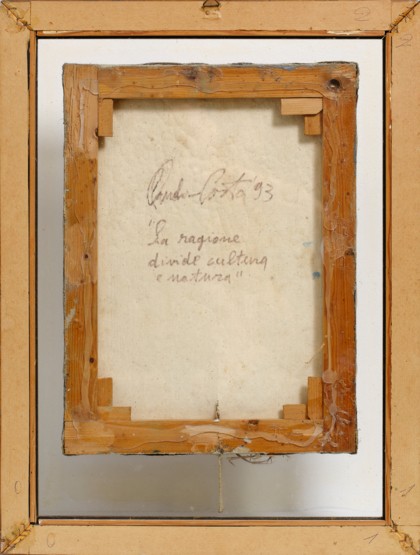 Claudio Costa '93
"La ragione
divide cultura
e natura"